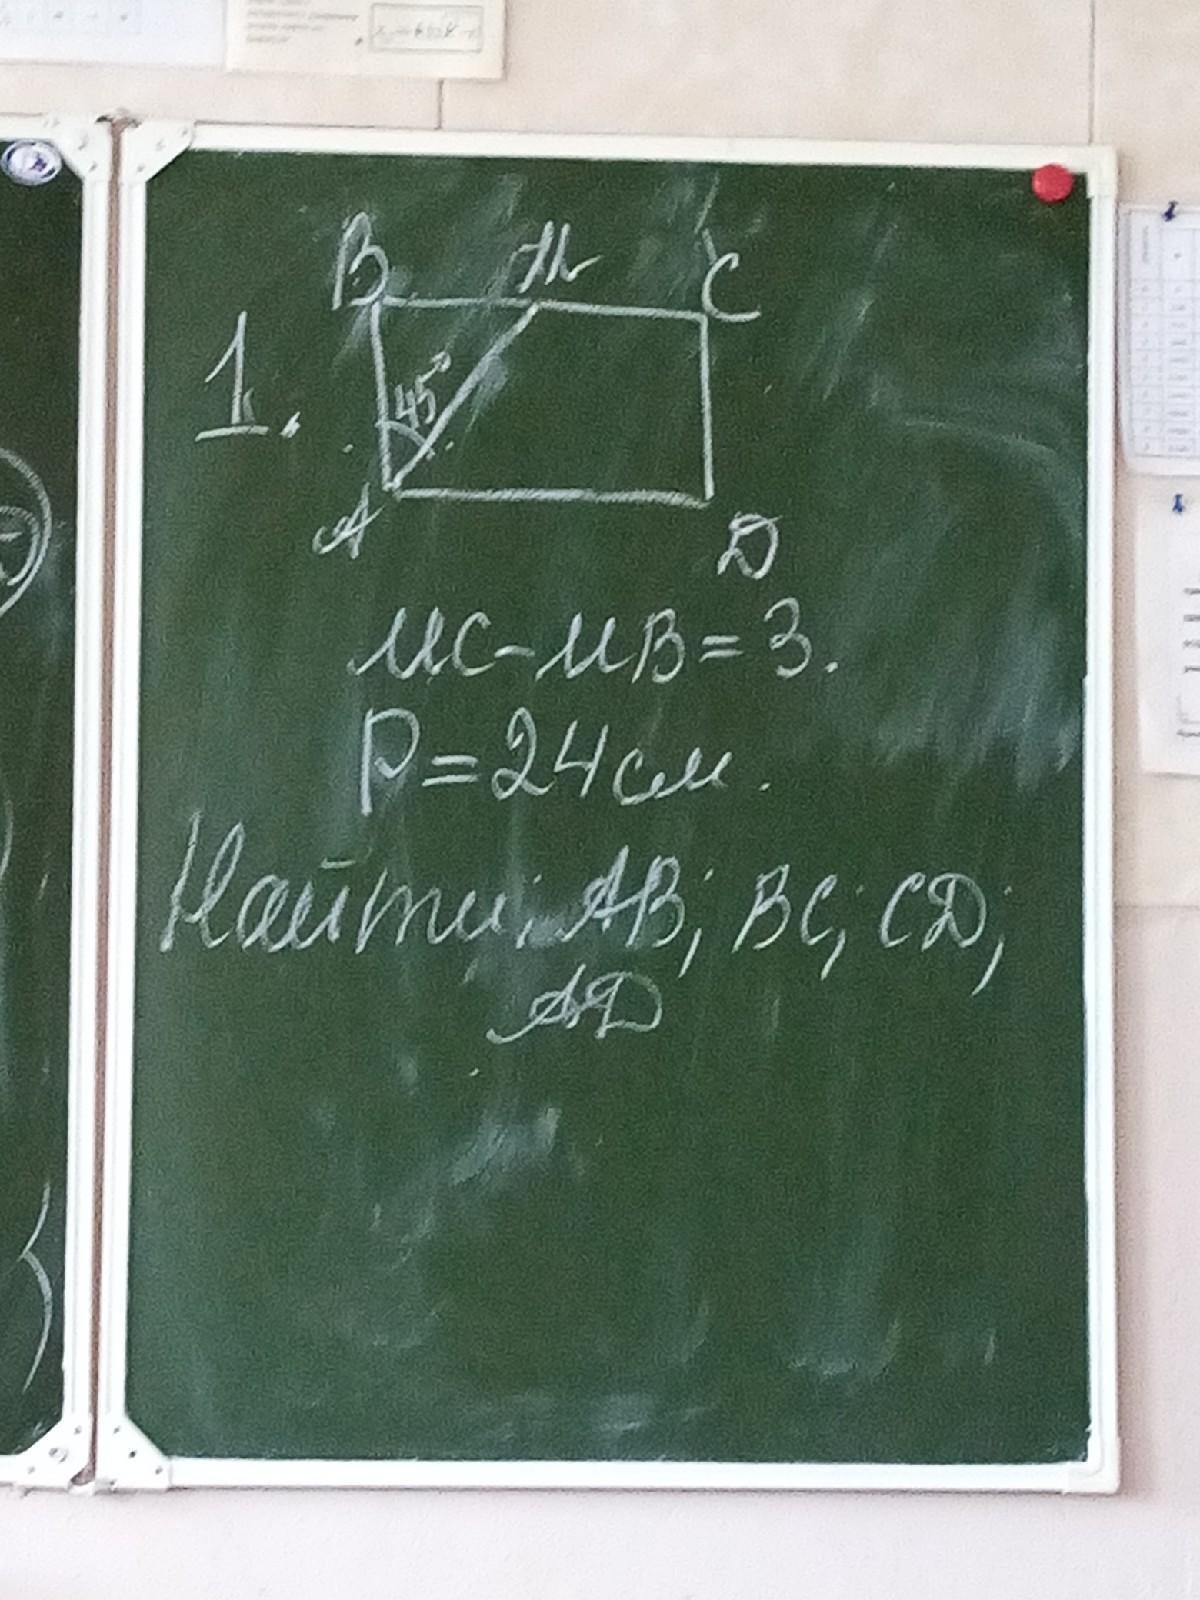 B M C
1.
45°
A D
MC-MB=3.
P=24см.
Найти: AB; BC; CD;
AD